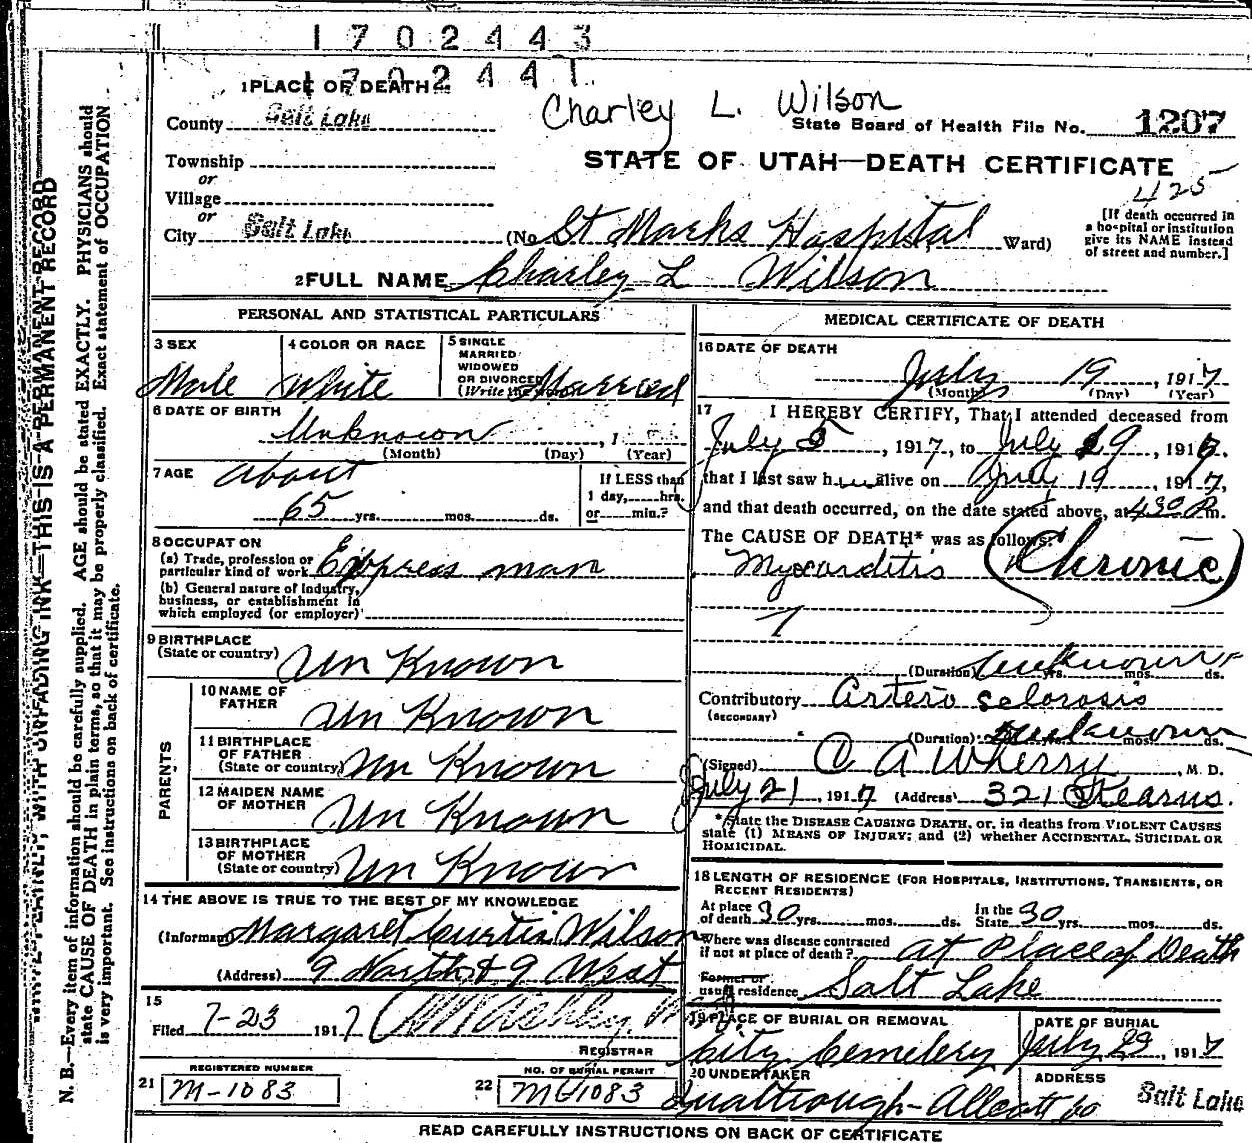 1702443
1702441
1 PLACE OF DEATH
Charley L. Wilson
County Salt Lake
State Board of Health File No. 1207
Township
STATE OF UTAH—DEATH CERTIFICATE
or
425
Village
or
City Salt Lake (No. St Marks Hospital St., Ward)
[If death occurred in
a hospital or institution
give its NAME instead
of street and number.]
2 FULL NAME Charley L Wilson
PERSONAL AND STATISTICAL PARTICULARS
3 SEX Male
4 COLOR OR RACE White
5 SINGLE
MARRIED
WIDOWED
OR DIVORCED
(Write the word) Married
6 DATE OF BIRTH
Unknown, 1
(Month) (Day) (Year)
7 AGE about
65 yrs. mos. ds.
If LESS than
1 day, hrs.
or min.?
8 OCCUPATION
(a) Trade, profession or
particular kind of work Express man
(b) General nature of industry,
business, or establishment in
which employed (or employer)
9 BIRTHPLACE
(State or country) Un Known
PARENTS
10 NAME OF
FATHER Un Known
11 BIRTHPLACE
OF FATHER
(State or country) Un Known
12 MAIDEN NAME
OF MOTHER Un Known
13 BIRTHPLACE
OF MOTHER
(State or country) Un Known
14 THE ABOVE IS TRUE TO THE BEST OF MY KNOWLEDGE
(Informant) Margaret Curtis Wilson
(Address) 9 North & 9 West
15
Filed 7-23 1917
REGISTRAR
REGISTERED NUMBER
21 M-1083
NO. OF BURIAL PERMIT
22 1083
MEDICAL CERTIFICATE OF DEATH
16 DATE OF DEATH
July 19, 1917
(Month) (Day) (Year)
17 I HEREBY CERTIFY, That I attended deceased from
July 5, 1917, to July 19, 1917.
that I last saw him alive on July 19, 1917,
and that death occurred, on the date stated above, at 430 P m.
The CAUSE OF DEATH* was as follows:
Myocarditis (Chronic)
(Duration) unknown yrs. mos. ds.
Contributory Arterio sclorosis
(SECONDARY)
(Duration) unknown yrs. mos. ds.
(Signed) C A Wherry, M. D.
July 21, 1917 (Address) 321 Stearns.
*State the DISEASE CAUSING DEATH, or, in deaths from VIOLENT CAUSES
state (1) MEANS OF INJURY; and (2) whether ACCIDENTAL, SUICIDAL OR
HOMICIDAL.
18 LENGTH OF RESIDENCE (FOR HOSPITALS, INSTITUTIONS, TRANSIENTS, OR
RECENT RESIDENTS)
At place
of death 30 yrs. mos. ds.
In the
State 30 yrs. mos. ds.
Where was disease contracted
if not at place of death? at Place of Death
Former or
usual residence Salt Lake
19 PLACE OF BURIAL OR REMOVAL
City Cemetery
DATE OF BURIAL
July 23, 1917
20 UNDERTAKER
ADDRESS
Salt Lake
READ CAREFULLY INSTRUCTIONS ON BACK OF CERTIFICATE
WRITE PLAINLY, WITH UNFADING INK—THIS IS A PERMANENT RECORD
N. B.—Every item of information should be carefully supplied. AGE should be stated EXACTLY. PHYSICIANS should
state CAUSE OF DEATH in plain terms, so that it may be properly classified. Exact statement of OCCUPATION
is very important. See instructions on back of certificate.